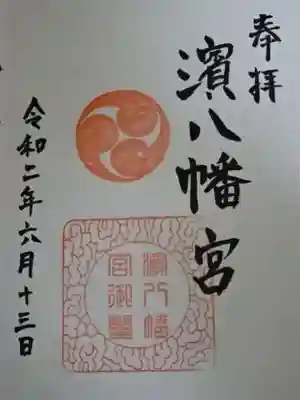 奉拝
濱八幡宮
濱八幡宮御璽
令和二年六月十三日